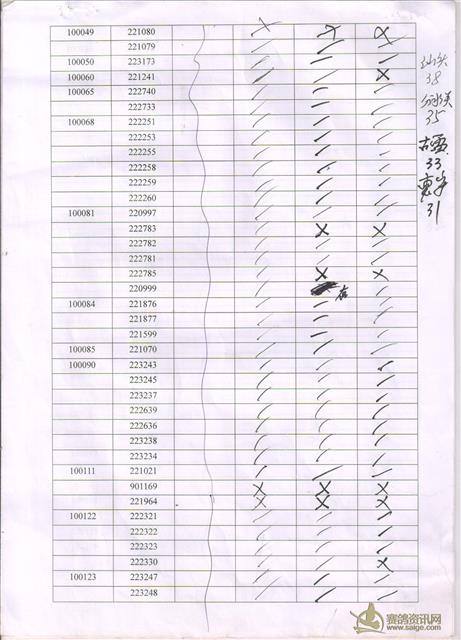 100049 221080 × × ×
221079 / / /
100050 223173 / / /
100060 221241 / / ×
100065 222740 / / /
222733 / / /
100068 222251 / / /
222253 / / /
222255 / / /
222258 / / /
222259 / / /
222260 / / /
100081 220997 / / /
222783 / × ×
222782 / / /
222781 / / /
222785 / × ×
220999 / 在 /
100084 221876 / / /
221877 / / /
221599 / / /
100085 221070 / / /
100090 223243 / / /
223245 / / /
223237 / / /
222639 / / /
222636 / / /
223238 / / /
223234 / / /
100111 221021 / / /
901169 × × ×
221964 × × ×
100122 222321 / / /
222322 / / /
222323 / / /
222330 / / ×
100123 223247 / / /
223248 / / /
汕头
38
35
古雷
33
31
赛鸽资讯网
www.saige.com